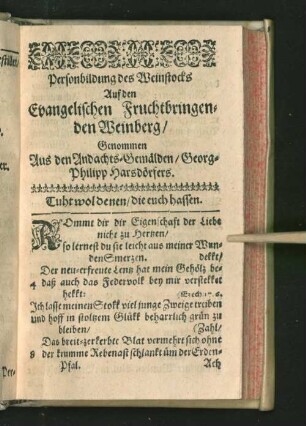 Personbildung des Weinstocks
Auf den
Evangelischen Fruchtbringen-
den Weinberg/
Genommen
Aus den Andachts-Gemälden/ Georg-
Philipp Harsdörfers.
Tuht wol denen/ die euch hassen.
Komme dir die Eigenschaft der Liebe
nicht zu Hertzen/
so lernest du sie leicht aus meiner Wun-
den Smerzen. dekkt/
Der neu-erfreute Lenz hat mein Gehölz be-
4 daß auch das Federvolk bey mir verstekket
hekkt:
Ich lasse meinen Stokk viel junge Zweige treiben
und hoff in stoltzem Glükk beharrlich grün zu
bleiben/ (Zahl/
Das breit-zerkerbte Blat vermehrt sich ohne
8 der krumme Rebenast schlankt üm der Erden-
Pfal. Ach